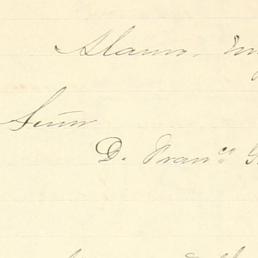 Alamos.
Señor
D. Franco